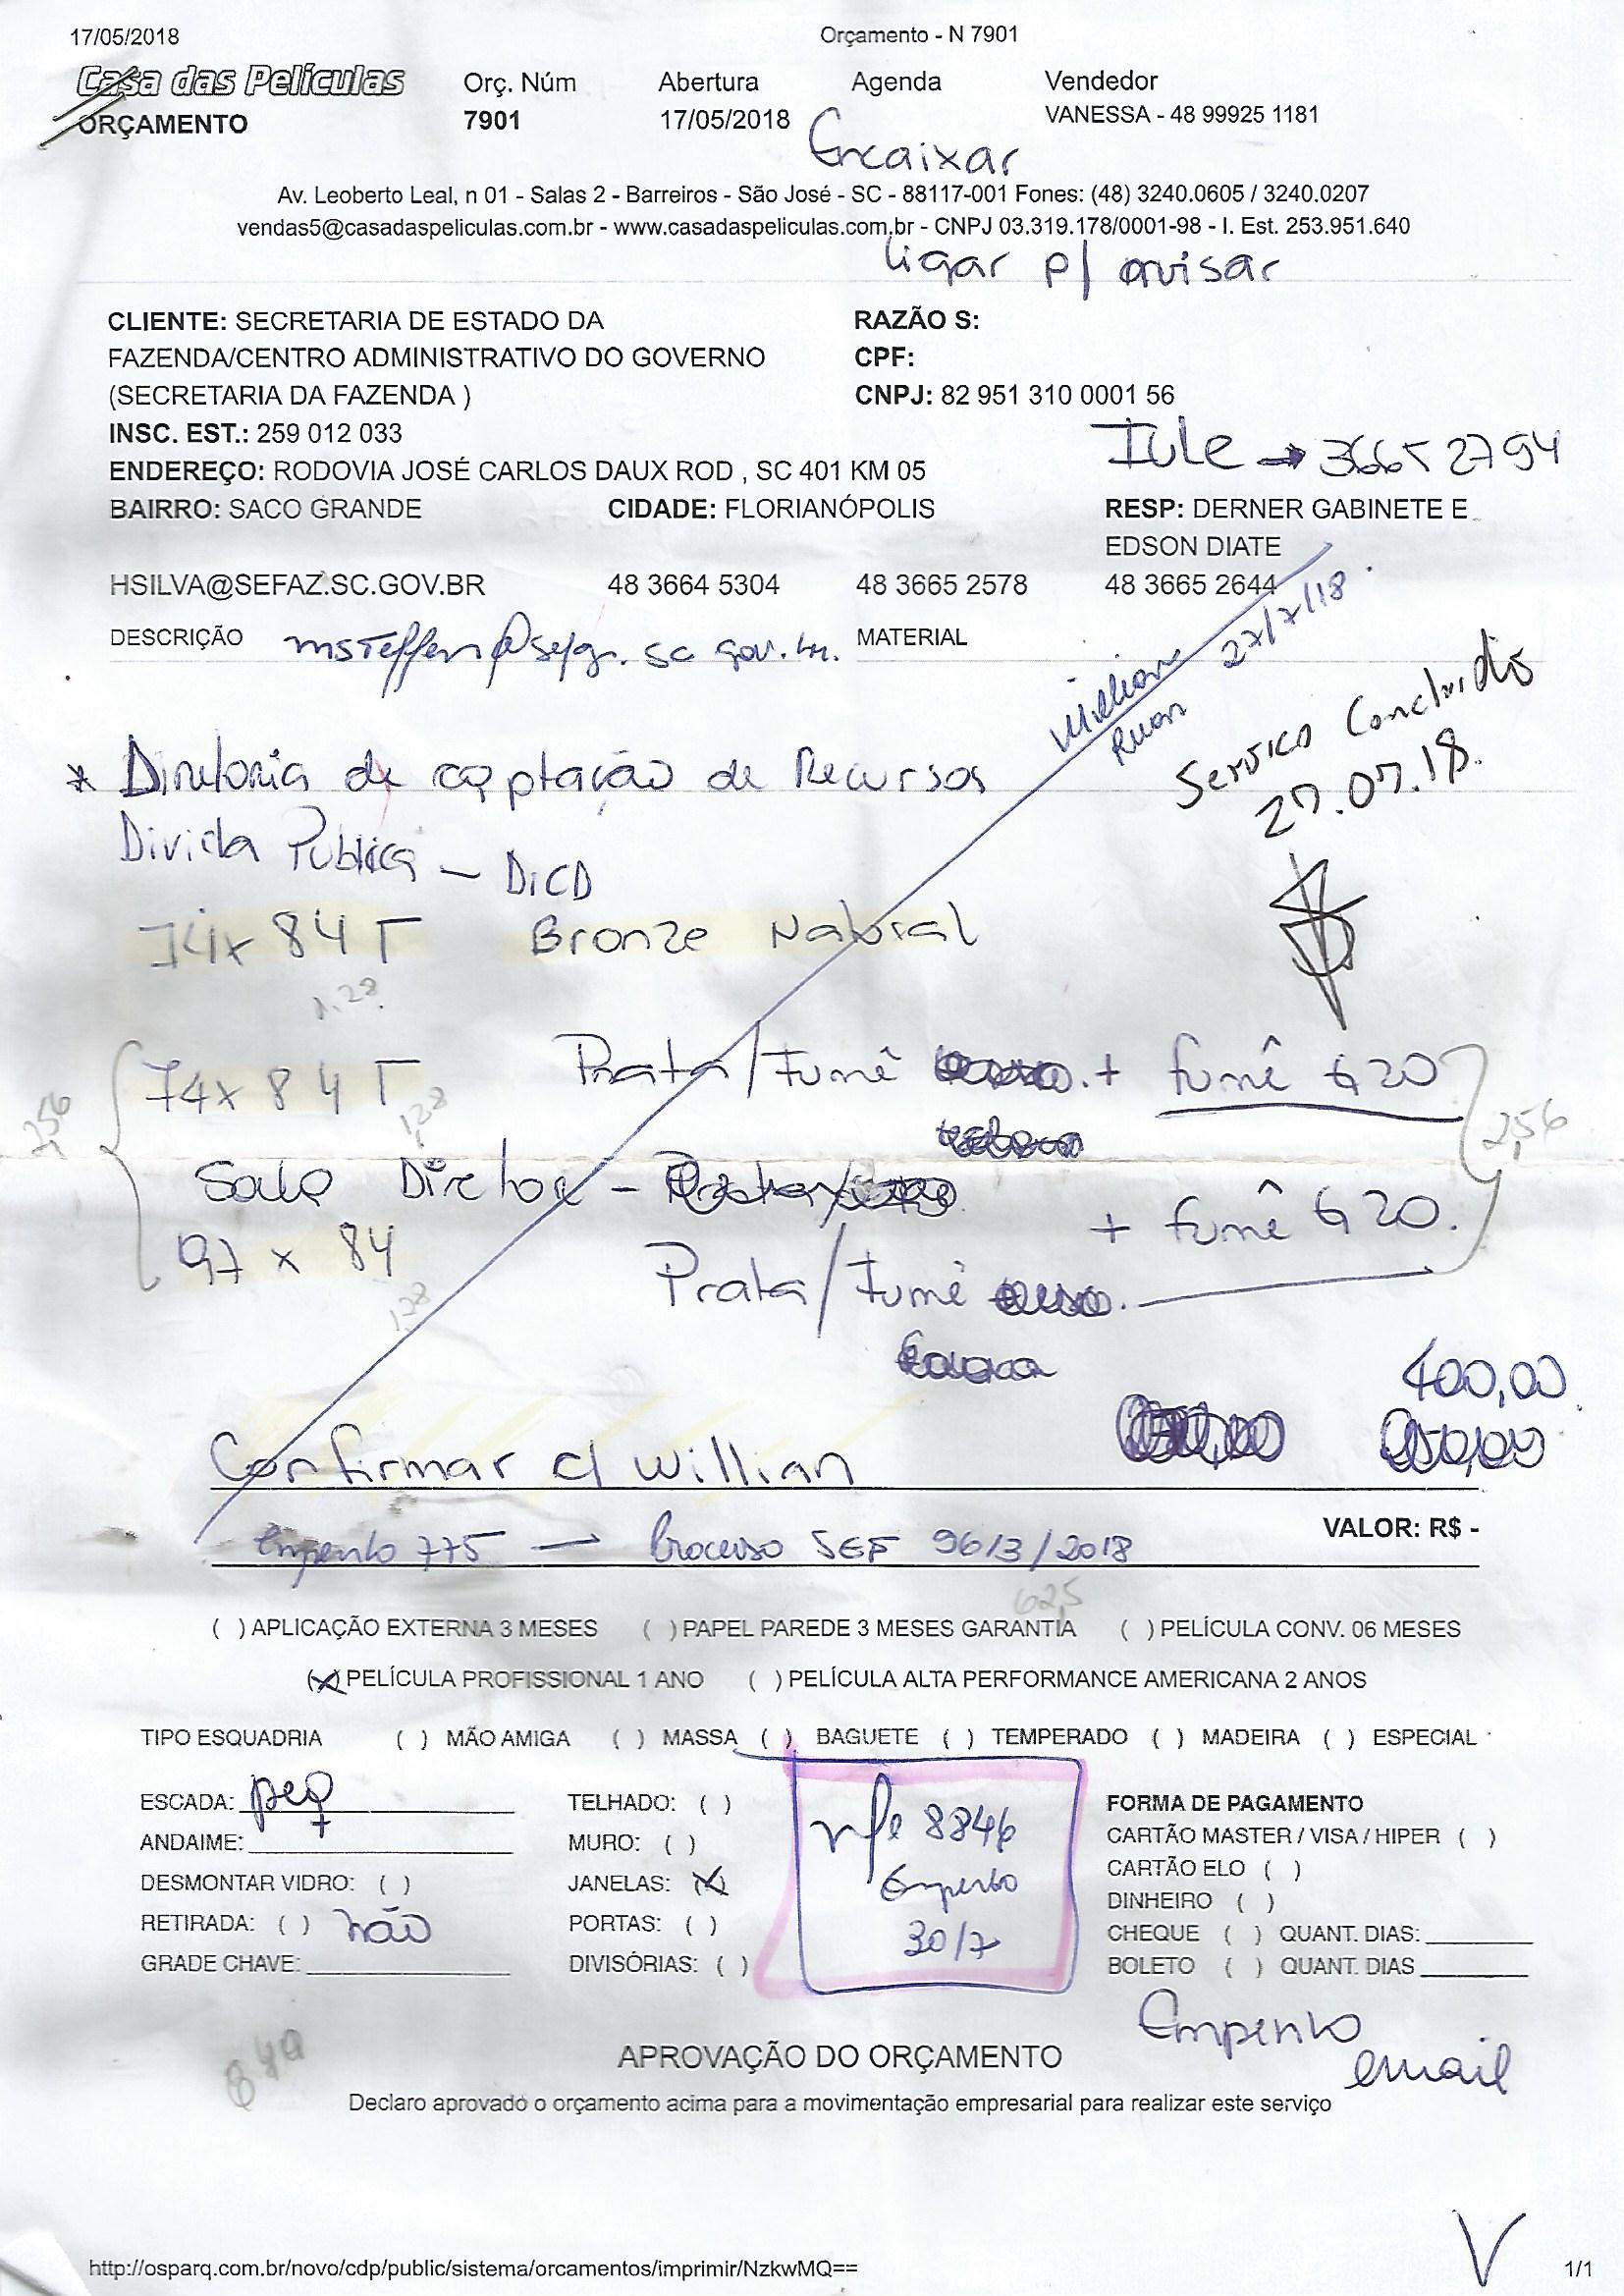 17/05/2018 Orçamento - N 7901
Casa das Películas Orç. Núm Abertura Agenda Vendedor
ORÇAMENTO 7901 17/05/2018 VANESSA - 48 99925 1181
Encaixar
Av. Leoberto Leal, n 01 - Salas 2 - Barreiros - São José - SC - 88117-001 Fones: (48) 3240.0605 / 3240.0207
vendas5@casadaspeliculas.com.br - www.casadaspeliculas.com.br - CNPJ 03.319.178/0001-98 - I. Est. 253.951.640
ligar p/ avisar
CLIENTE: SECRETARIA DE ESTADO DA RAZÃO S:
FAZENDA/CENTRO ADMINISTRATIVO DO GOVERNO CPF:
(SECRETARIA DA FAZENDA ) CNPJ: 82 951 310 0001 56
INSC. EST.: 259 012 033
Iule → 36652794
ENDEREÇO: RODOVIA JOSÉ CARLOS DAUX ROD , SC 401 KM 05
BAIRRO: SACO GRANDE CIDADE: FLORIANÓPOLIS RESP: DERNER GABINETE E
EDSON DIATE
HSILVA@SEFAZ.SC.GOV.BR 48 3664 5304 48 3665 2578 48 3665 2644
DESCRIÇÃO MATERIAL
Ruan 27/7/18
Servico Concluido
27.07.18.
* Diretoria de captação de Recursos
Divida Publica - DICD
74x84T Bronze Natural
1,28
74x84T Prata/Fumê + fumê G20
1,28
2,56 2,56
Sala Diretor - + fumê G20.
97 x 84 Prata/Fumê
1,28
400,00
Confirmar c/ Willian
VALOR: R$ -
Empenho 775 — Processo SEF 9613/2018
62,5
( ) APLICAÇÃO EXTERNA 3 MESES ( ) PAPEL PAREDE 3 MESES GARANTIA ( ) PELÍCULA CONV. 06 MESES
(X) PELÍCULA PROFISSIONAL 1 ANO ( ) PELÍCULA ALTA PERFORMANCE AMERICANA 2 ANOS
TIPO ESQUADRIA ( ) MÃO AMIGA ( ) MASSA ( ) BAGUETE ( ) TEMPERADO ( ) MADEIRA ( ) ESPECIAL
ESCADA: peq TELHADO: ( ) FORMA DE PAGAMENTO
ANDAIME: MURO: ( ) CARTÃO MASTER / VISA / HIPER ( )
DESMONTAR VIDRO: ( ) JANELAS: (X) CARTÃO ELO ( )
DINHEIRO ( )
RETIRADA: ( ) não PORTAS: ( ) CHEQUE ( ) QUANT. DIAS:
GRADE CHAVE: DIVISÓRIAS: ( ) BOLETO ( ) QUANT. DIAS
nfe 8846
Empenho
30/7
Empenho
email
APROVAÇÃO DO ORÇAMENTO
Declaro aprovado o orçamento acima para a movimentação empresarial para realizar este serviço
V
http://osparq.com.br/novo/cdp/public/sistema/orcamentos/imprimir/NzkwMQ== 1/1